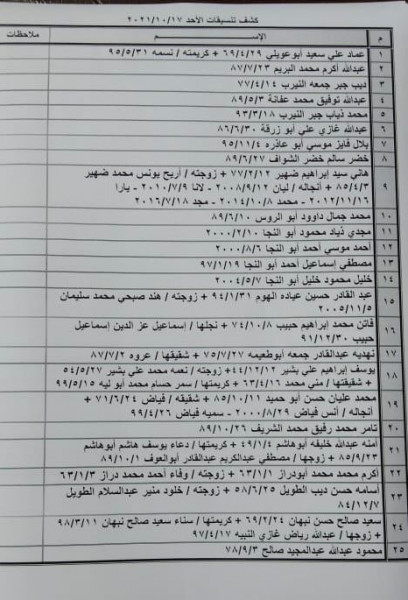 كشف تنسيقات الأحد ٢٠٢١/١٠/١٧
م الإســـم ملاحظات
١ عماد علي سعيد أبوعويلي ٦٩/٤/٢٩ + كريمته / نسمه ٩٥/٥/٣١
٢ عبدالله أكرم محمد البريم ٨٧/٧/٢٣
٣ ديب جبر جمعه النيرب ٧٧/٤/١٤
٤ عبدالله توفيق محمد عفانة ٨٩/٥/٣
٥ محمد ذياب جبر النيرب ٩٣/٣/١٨
٦ عبدالله غازي علي أبو زرقة ٨٦/٦/٣٠
٧ بلال فايز موسي أبو عاذره ٩٥/١١/٤
٨ خضر سالم خضر الشواف ٨٩/٦/٢٧
٩ هاني سيد إبراهيم ضهير ٧٧/٢/١٢ + زوجته / أريج يونس محمد ضهير
٨٥/٤/٣ + أنجاله / ليان ٢٠٠٨/٩/١٢ - لانا ٢٠١٠/٧/٩ - يارا
٢٠١٢/١١/١٦ - محمد ٢٠١٤/١٠/٨ - مجد ٢٠١٦/٧/١٨
١٠ محمد جمال داوود أبو الروس ٨٩/٦/١٠
١١ مجدي ذياد محمود أبو النجا ٢٠٠٠/٢/١٠
١٢ أحمد موسي أحمد أبو النجا ٢٠٠٠/٨/٦
١٣ مصطفي إسماعيل أحمد أبو النجا ٩٧/١/١٩
١٤ خليل محمود خليل أبو النجا ٢٠٠٤/٥/٧
١٥ عبد القادر حسين عياده الهوم ٩٤/١/٣١ + زوجته / هند صبحي محمد سليمان
٢٠٠٥/١١/٥
١٦ فاتن محمد إبراهيم حبيب ٧٤/١٠/٨ + نجلها / إسماعيل عز الدين إسماعيل
حبيب ٩١/١٢/٣٠
١٧ نهديه عبدالقادر جمعه أبوطعيمه ٧٥/٧/٢٧ + شقيقها / عروه ٨٧/٧/٢
١٨ يوسف إبراهيم علي بشير ٤٤/١٢/١٢ + زوجته / نعمه محمد علي بشير ٥٤/٥/٢٧
+ شقيقتها / مني محمد ٦٣/٤/١٦ + كريمتها / سمر حسام محمد أبو ليه ٩٩/٥/١٥
١٩ محمد عليان حسن أبو حميد ٨٥/١٠/١١ + شقيقه / فياض ٧١/٦/٢٤ +
أنجاله / أنس فياض ٢٠٠٠/٨/٢٩ - سميه فياض ٩٩/٤/٢٦
٢٠ تامر محمد رفيق محمد الشريف ٨٩/١٠/٢٦
٢١ أمنه عبدالله خليفه أبوهاشم ٤٩/١/٤ + كريمتها / دعاء يوسف هاشم أبوهاشم
٨٥/٩/٢٣ + زوجها / مصطفي عبدالكريم عبدالقادر أبوالعوف ٨٩/١٠/١
٢٢ أكرم محمد محمد أبودراز ٦٣/١/١ + زوجته / وفاء أحمد محمد دراز ٦٣/١/٣
٢٣ أسامه حسن ديب الطويل ٥٨/٦/٢٥ + زوجته / خلود منير عبدالسلام الطويل
٨٤/١٢/٧
٢٤ سعيد صالح حسن نبهان ٦٩/٢/٢٤ + كريمتها / سناء سعيد صالح نبهان ٩٨/٣/١١
+ زوجها / عبدالله رياض غازي النبيه ٩٧/٤/١٧
٢٥ محمود عبدالله عبدالمجيد صالح ٧٨/٩/٣